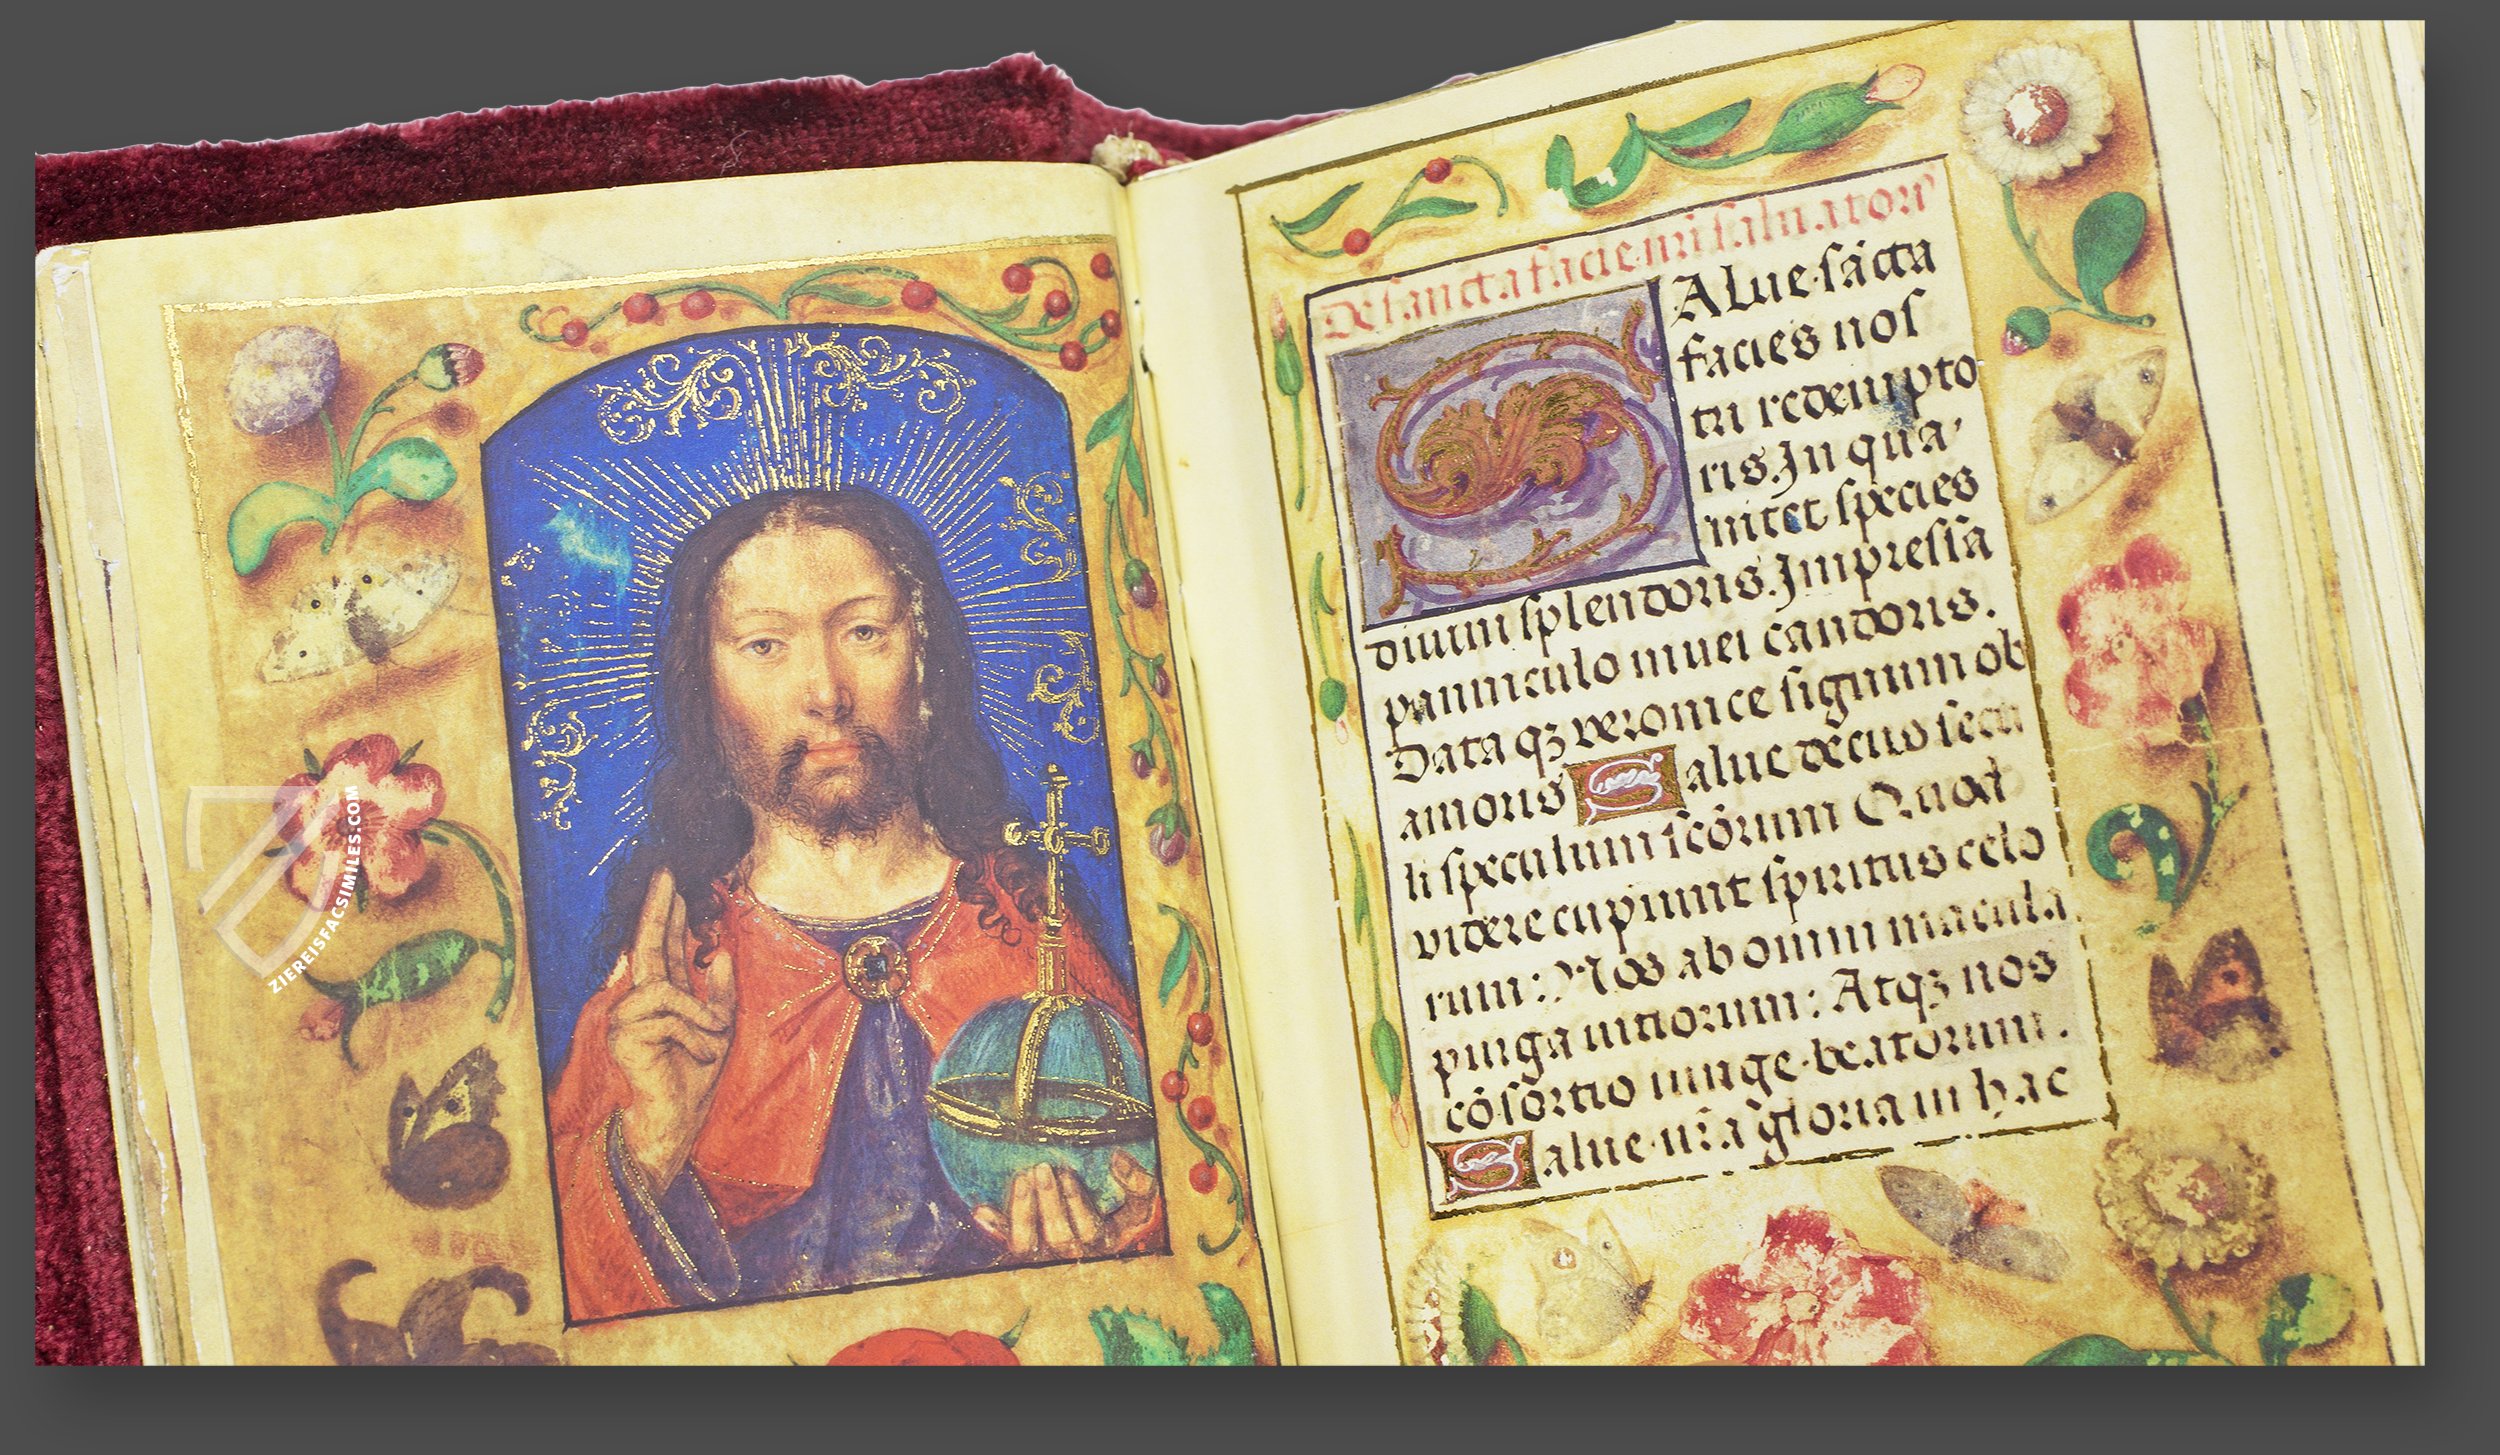 ZIEREISFACSIMILES.COM
De sancta facie nr̄i saluatori᷒
SALue·sācta
facies nos
tri redempto
ris. In qua
nitet species
diuini splendoris. Impressa
panniculo niuei candoris.
Data qꝫ veronice signum ob
amoris Salue decus secu
li speculum scōrum Quod
videre cupiunt spiritus celo
rum: Nos ab omni macula
purga uitiorum: Atqꝫ nos
cōsortio iunge·beatorum.
Salue·nr̄a gloria in hac